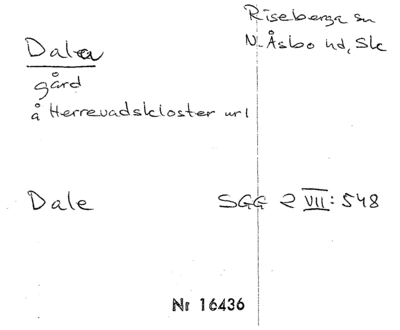 Riseberga sn
Dala
N. Åsbo hd, Sk
gård
å Herrevadskloster url
Dale SGG 2 VII: 548
Nr 16436